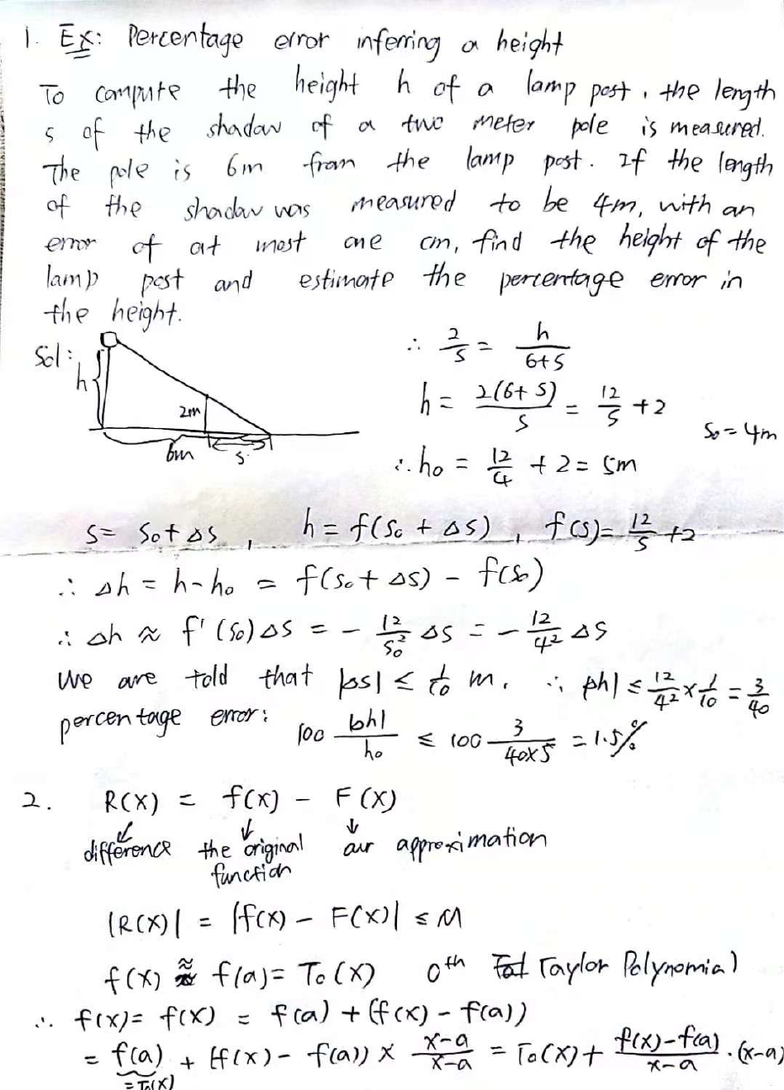 1. Ex: Percentage error inferring a height
To compute the height h of a lamp post, the length
s of the shadow of a two meter pole is measured.
The pole is 6m from the lamp post. If the length
of the shadow was measured to be 4m, with an
error of at most one cm, find the height of the
lamp post and estimate the percentage error in
the height.
Sol:
h
2m
6m
s
∴ 2/s = h/(6+s)
h = 2(6+s)/s = 12/s + 2
s₀ = 4m
∴ h₀ = 12/4 + 2 = 5m
s = s₀ + Δs, h = f(s₀ + Δs), f(s) = 12/s + 2
∴ Δh = h - h₀ = f(s₀ + Δs) - f(s₀)
∴ Δh ≈ f'(s₀)Δs = - 12/s₀² Δs = - 12/4² Δs
We are told that |Δs| ≤ 1/10 m. ∴ |Δh| ≤ 12/4² × 1/10 = 3/40
percentage error: 100 |Δh|/h₀ ≤ 100 3/(40×5) = 1.5%
2. R(x) = f(x) - F(x)
difference the original our approximation
function
|R(x)| = |f(x) - F(x)| ≤ M
f(x) ≈ f(a) = T₀(x) 0th Taylor Polynomial
∴ f(x) = f(x) = f(a) + (f(x) - f(a))
= f(a) + (f(x) - f(a)) × (x-a)/(x-a) = T₀(x) + (f(x)-f(a))/(x-a) · (x-a)
= T₀(x)